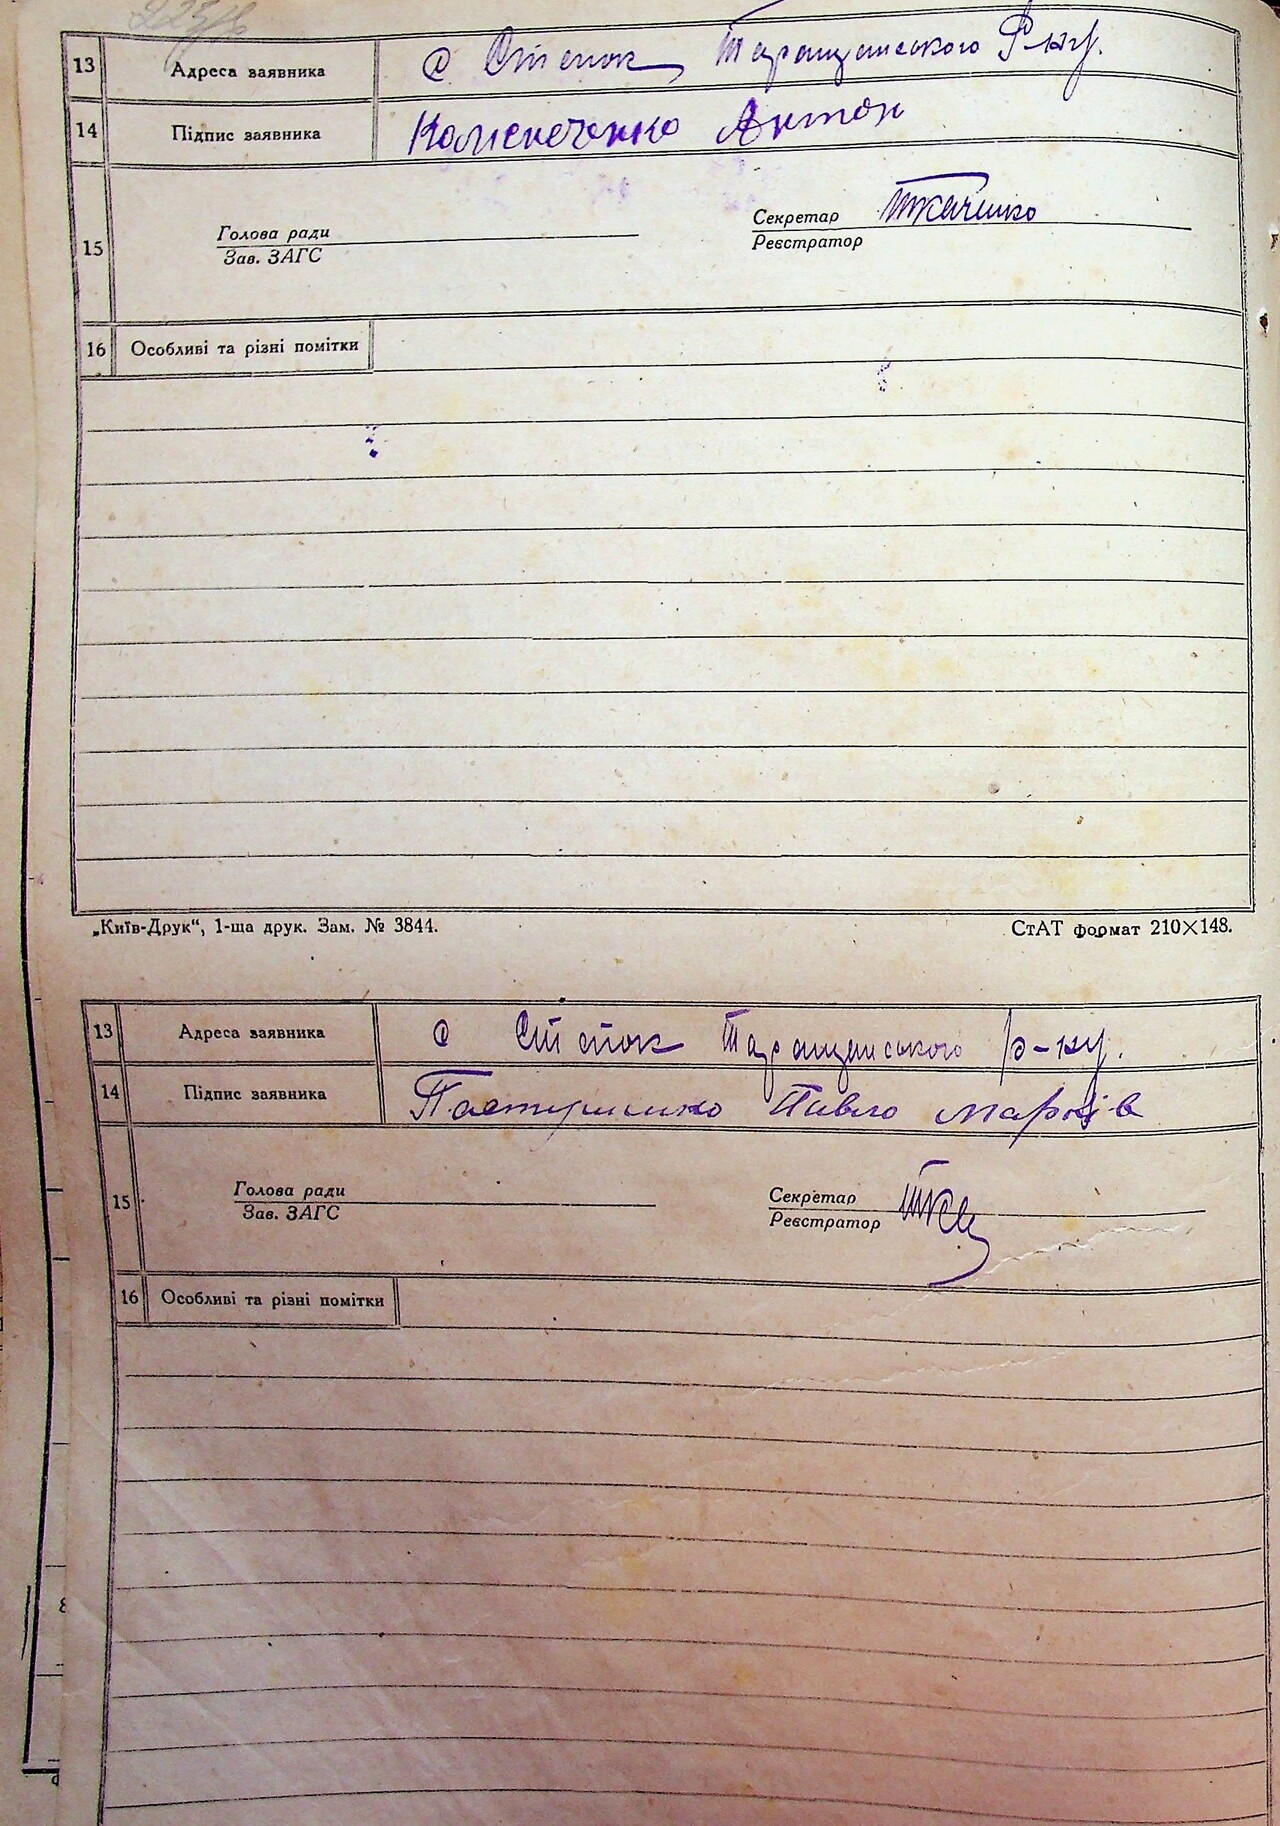 13 Адреса заявника с Степок Таращанського Р-ну.
14 Підпис заявника Антон
15 Голова ради Секретар Ткаченко
Зав. ЗАГС Реєстратор
16 Особливі та різні помітки
„Київ-Друк“, 1-ша друк. Зам. № 3844. СтАТ формат 210×148.
13 Адреса заявника с Степок Таращанського р-ну.
14 Підпис заявника Павло Марків
15 Голова ради Секретар
Зав. ЗАГС Реєстратор
16 Особливі та різні помітки
8